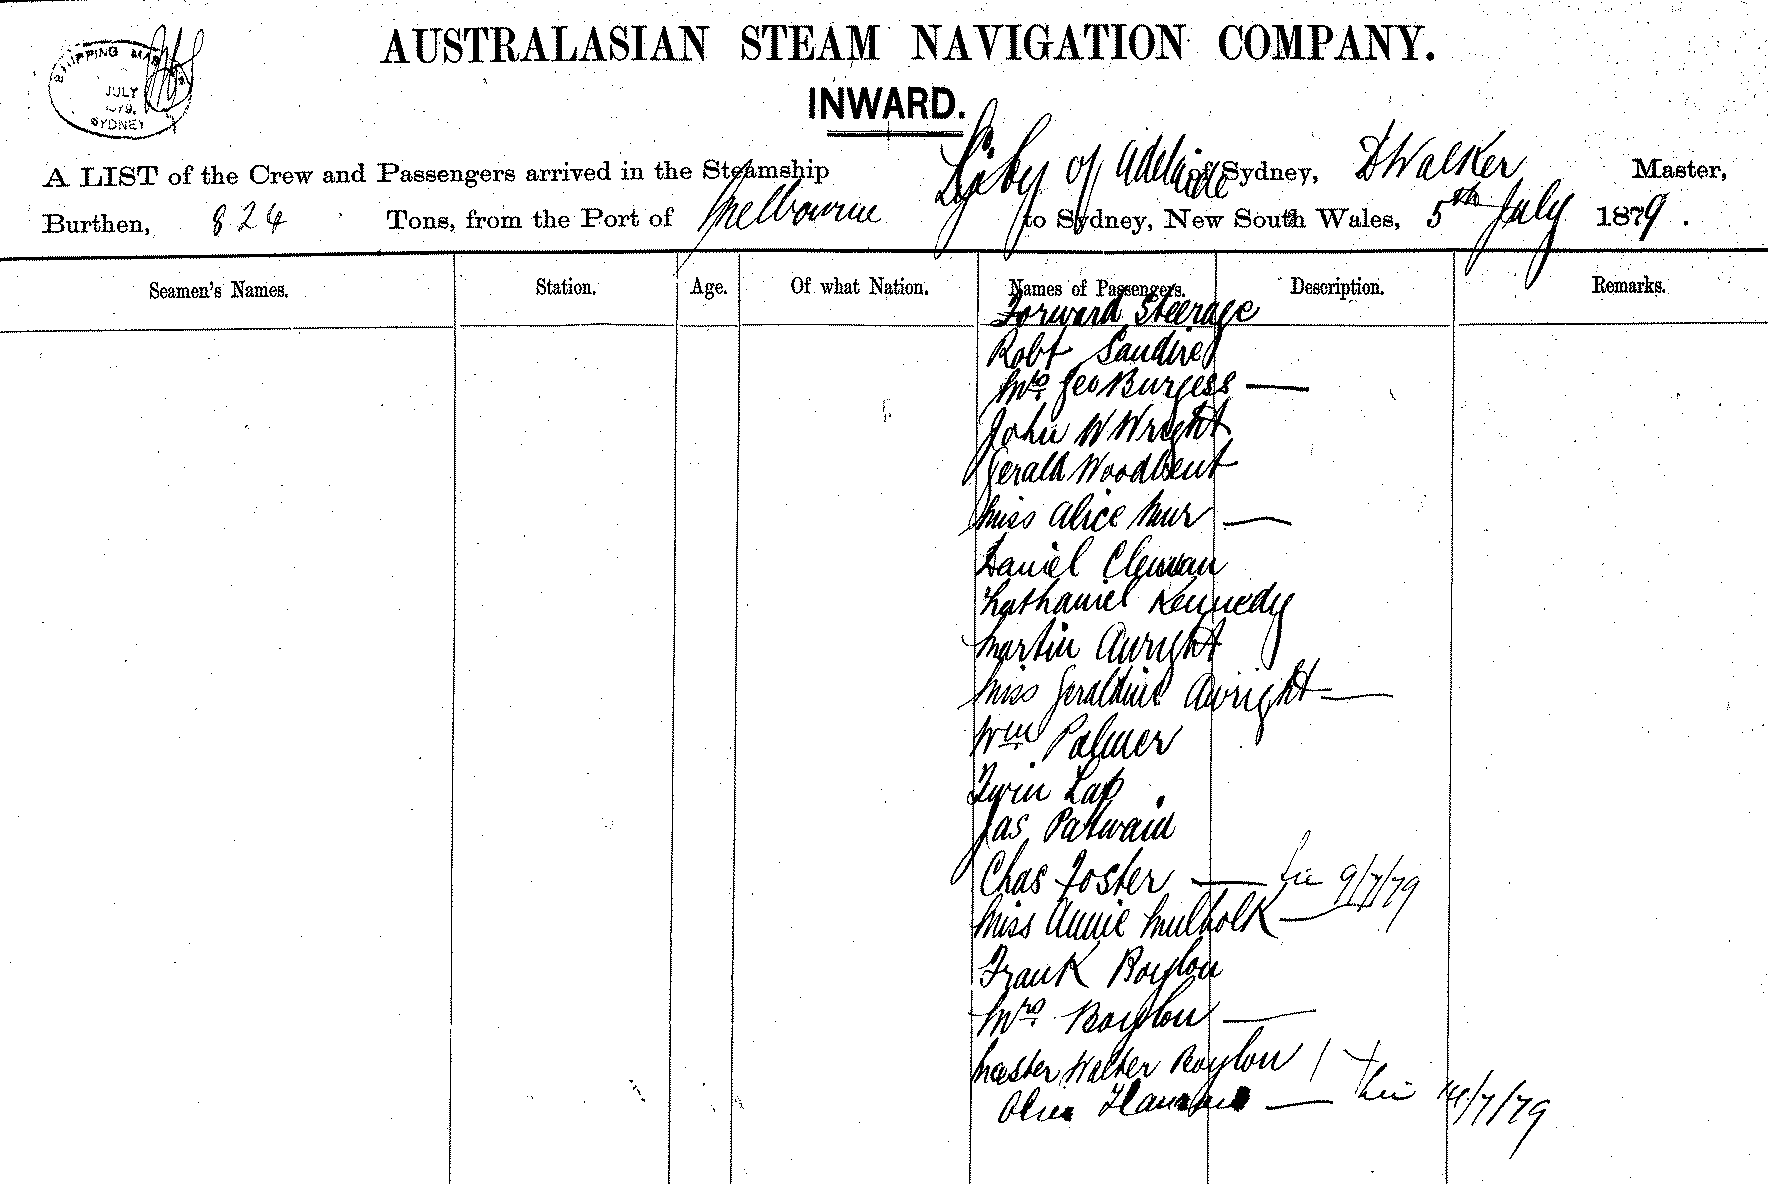 SHIPPING MASTER
JULY
1879.
SYDNEY
AUSTRALASIAN STEAM NAVIGATION COMPANY.
INWARD.
A LIST of the Crew and Passengers arrived in the Steamship City of Adelaide of Sydney, D Walker Master,
Burthen, 824 Tons, from the Port of Melbourne to Sydney, New South Wales, 5th July 1879.
Seamen's Names. Station. Age. Of what Nation. Names of Passengers. Description. Remarks.
Forward Steerage
Robt
Mrs Geo Burgess —
John W Wright
Gerald
Miss Alice —
Daniel
Nathaniel Kennedy
Martin Auright
Miss Geraldine Auright —
Wm Palmer
Lap
Jas
Chas Foster — 9/7/79
Miss Annie —
Frank Boylon
Mrs Boylon —
Master Walter Boylon /
— 14/7/79